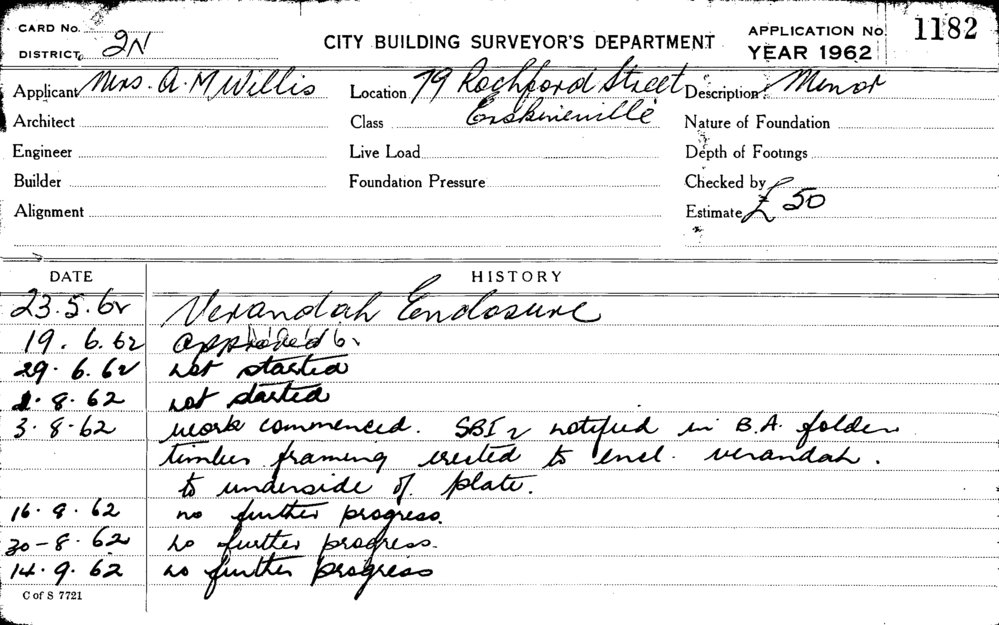 CARD No.
DISTRICT 2N
CITY BUILDING SURVEYOR'S DEPARTMENT
APPLICATION No. 1182
YEAR 1962
Applicant Mrs. A. M Willis
Location 79 Rochford Street
Description Minor
Architect
Class Erskineville
Nature of Foundation
Engineer
Live Load
Depth of Footings
Builder
Foundation Pressure
Checked by
Alignment
Estimate £50
DATE HISTORY
23.5.62 Verandah Enclosure
19.6.62 approved
29.6.62 not started
8.62 not started
3.8.62 work commenced. SBI notified in B.A. folder
timber framing erected to encl. verandah.
to underside of plate.
16.8.62 no further progress.
30-8.62 no further progress.
14.9.62 no further progress
C of S 7721